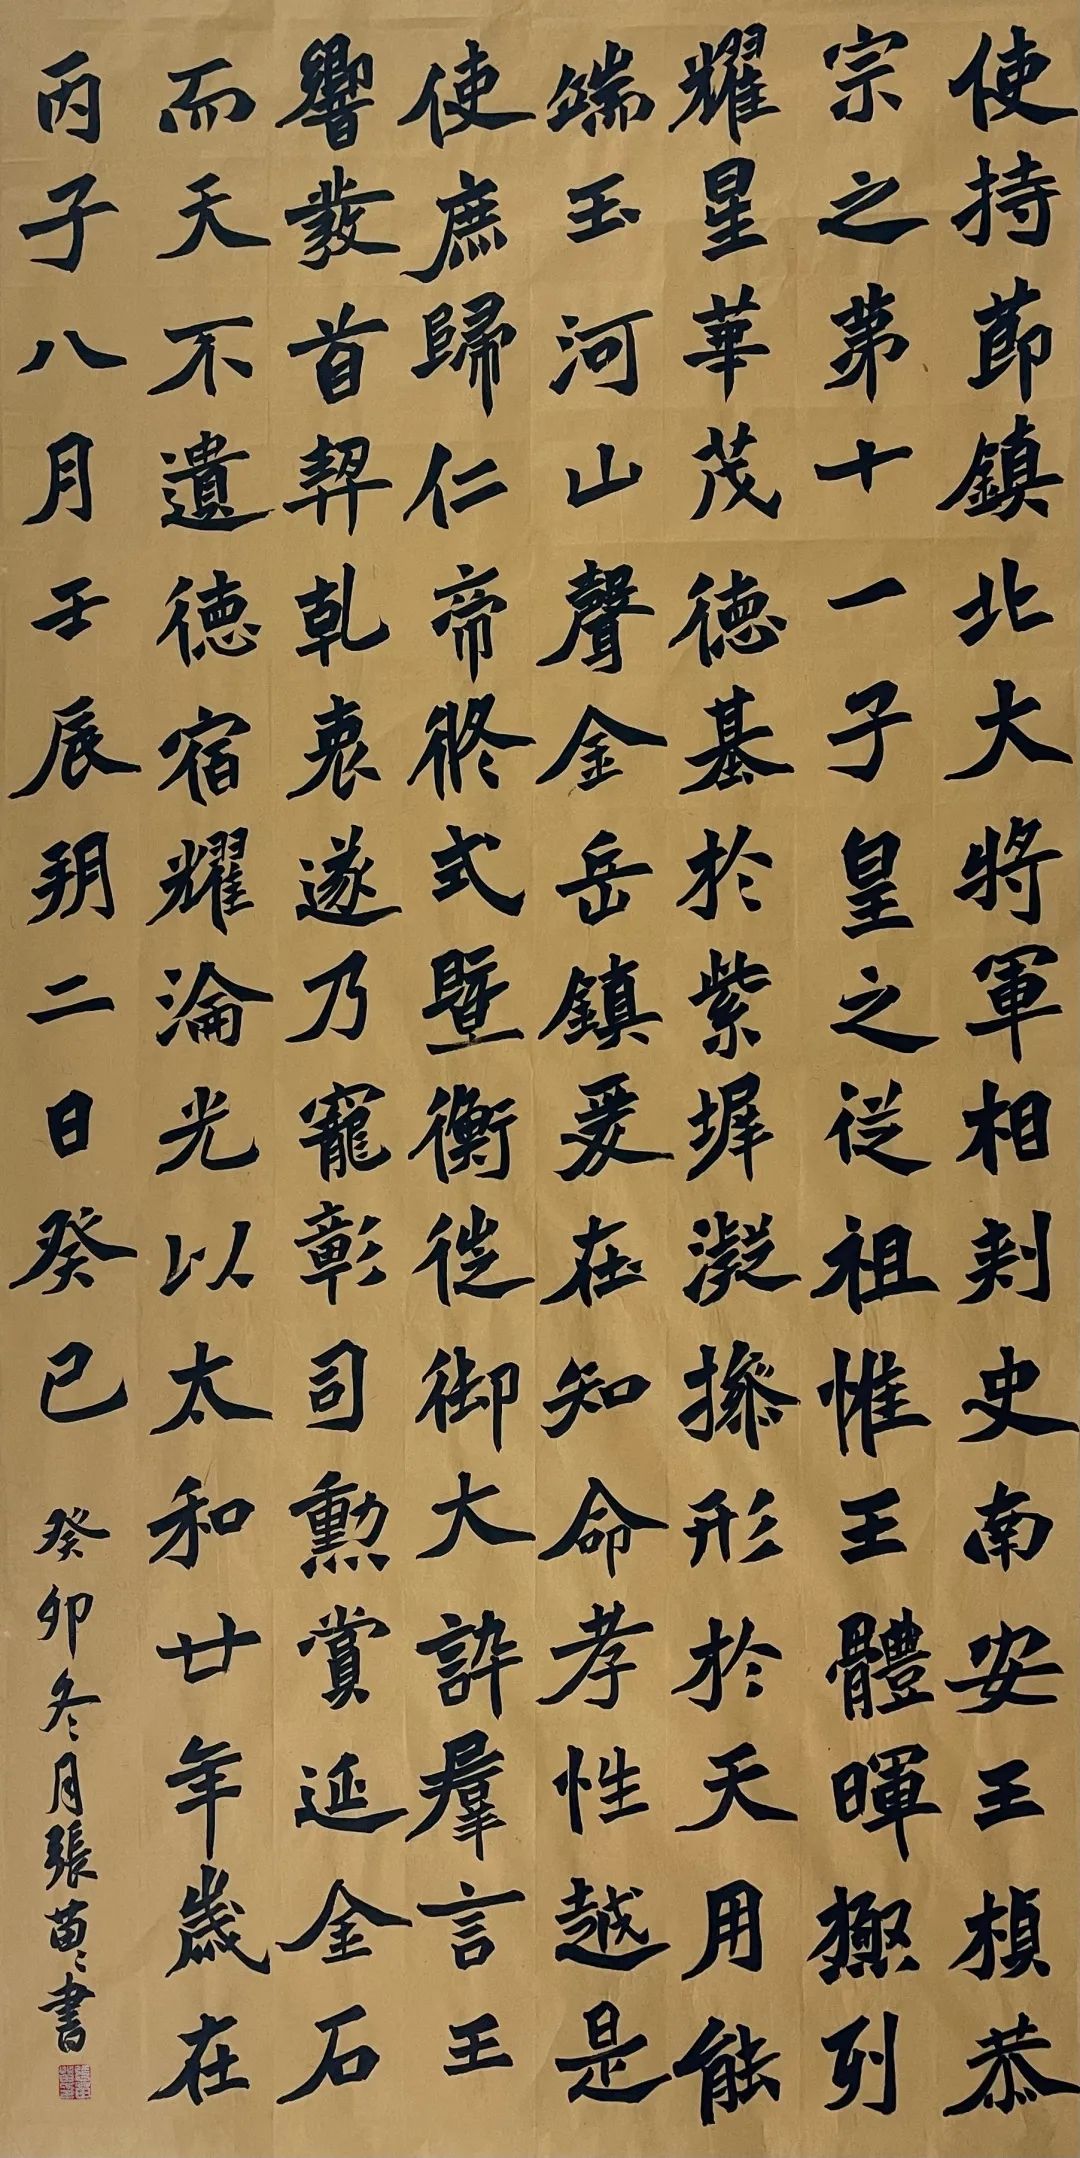 使持節鎮北大將軍相刾史南安王楨恭
宗之第十一子皇之從祖惟王體暉極列
耀星華茂德基於紫墀凝操形於天用能
端玉河山聲金岳鎮爰在知命孝性越是
使庶歸仁帝終式暨衡從御大訬羣言王
響發首契乾衷遂乃寵彰司勳賞延金石
而天不遺德宿耀淪光以太和廿年歲在
丙子八月壬辰朔二日癸巳
癸卯冬月張苗苗書